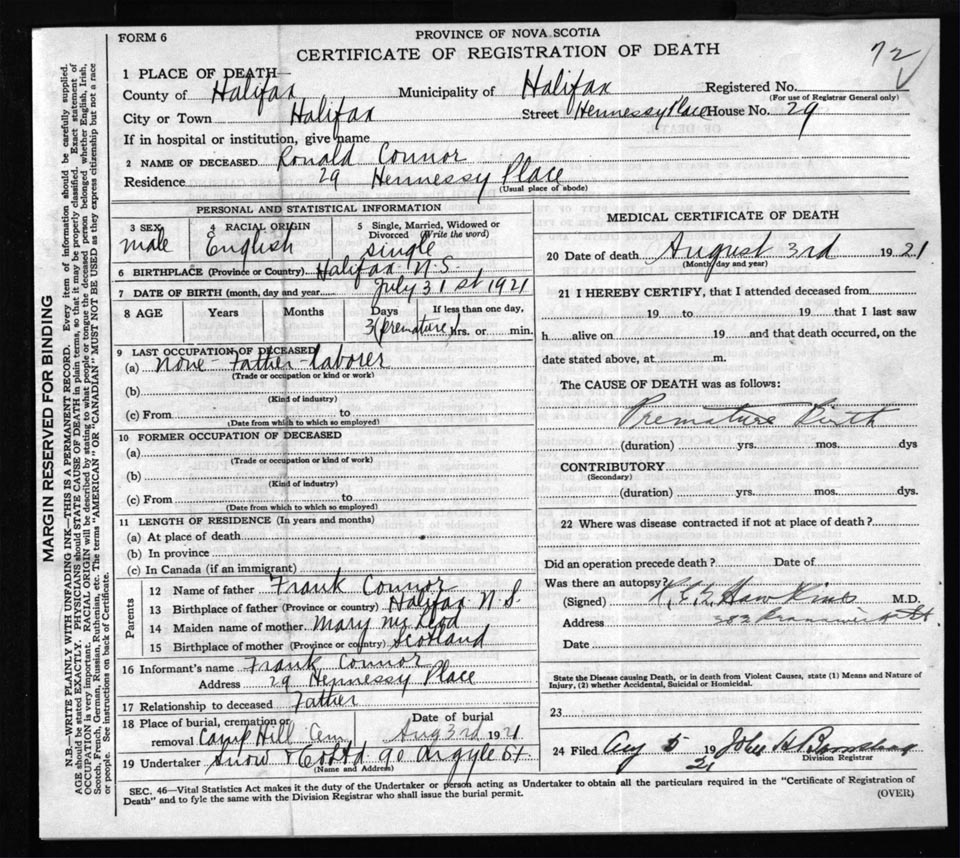 FORM 6
PROVINCE OF NOVA SCOTIA
CERTIFICATE OF REGISTRATION OF DEATH
72
1 PLACE OF DEATH
County of Halifax Municipality of Halifax Registered No.
(For use of Registrar General only)
City or Town Halifax Street Hennessy Place House No. 29
If in hospital or institution, give name
2 NAME OF DECEASED Ronald Connor
Residence 29 Hennessy Place
(Usual place of abode)
PERSONAL AND STATISTICAL INFORMATION
3 SEX 4 RACIAL ORIGIN 5 Single, Married, Widowed or Divorced (Write the word)
male English single
6 BIRTHPLACE (Province or Country) Halifax N.S.
7 DATE OF BIRTH (month, day and year) July 31st 1921
8 AGE Years Months Days If less than one day,
3 (premature) hrs. or min.
9 LAST OCCUPATION OF DECEASED
(a) none - Father - laborer
(Trade or occupation or kind or work)
(b)
(Kind of industry)
(c) From to
(Date from which to which so employed)
10 FORMER OCCUPATION OF DECEASED
(a)
(Trade or occupation or kind of work)
(b)
(Kind of industry)
(c) From to
(Date from which to which so employed)
11 LENGTH OF RESIDENCE (In years and months)
(a) At place of death
(b) In province
(c) In Canada (if an immigrant)
Parents
12 Name of father Frank Connor
13 Birthplace of father (Province or country) Halifax N.S.
14 Maiden name of mother Mary
15 Birthplace of mother (Province or country) Scotland
16 Informant's name Frank Connor
Address 29 Hennessy Place
17 Relationship to deceased Father
18 Place of burial, cremation or removal Camp Hill Cem Date of burial Aug 3rd 1921
19 Undertaker Snow & Co Ltd 90 Argyle St
(Name and Address)
MEDICAL CERTIFICATE OF DEATH
20 Date of death August 3rd 1921
(Month day and year)
21 I HEREBY CERTIFY, that I attended deceased from
19 to 19 that I last saw
h alive on 19 and that death occurred, on the
date stated above, at m.
The CAUSE OF DEATH was as follows:
Premature Birth
(duration) yrs. mos. dys
CONTRIBUTORY
(Secondary)
(duration) yrs. mos. dys.
22 Where was disease contracted if not at place of death?
Did an operation precede death? Date of
Was there an autopsy?
(Signed) M.D.
Address
Date
State the Disease causing Death, or in death from Violent Causes, state (1) Means and Nature of
Injury, (2) whether Accidental, Suicidal or Homicidal.
23
24 Filed Aug 5 1921 John
Division Registrar
SEC. 46—Vital Statistics Act makes it the duty of the Undertaker or person acting as Undertaker to obtain all the particulars required in the "Certificate of Registration of
Death" and to fyle the same with the Division Registrar who shall issue the burial permit.
(OVER)
MARGIN RESERVED FOR BINDING
N.B.—WRITE PLAINLY WITH UNFADING INK—THIS IS A PERMANENT RECORD. Every item of information should be carefully supplied.
AGE should be stated EXACTLY. PHYSICIANS should STATE CAUSE OF DEATH in plain terms, so that it may be properly classified. Exact statement of
OCCUPATION is very important. RACIAL ORIGIN will be described by stating to what people or tongue the deceased person belonged whether English, Irish,
Scotch, French, German, Russian, Ruthenian, etc. The terms "AMERICAN" OR "CANADIAN" MUST NOT BE USED as they express citizenship but not a race
or people. See instructions on back of Certificate.